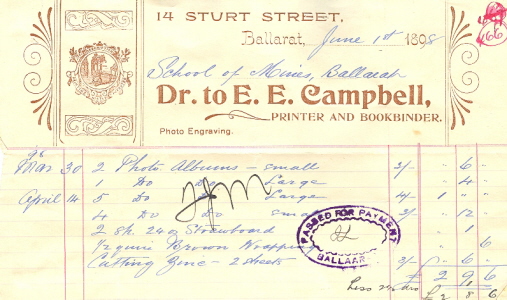 14 STURT STREET,
66
Ballarat, June 1st 1898
School of Mines, Ballarat
Dr. to E. E. Campbell,
PRINTER AND BOOKBINDER.
Photo Engraving.
98
Mar 30 2 Photo. Albums – small 3/- " 6 "
1 Do Do Large " 4 "
April 14 5 Do Do Large 4/- 1 " "
4 Do Do small 3/- " 12 "
2 Sh. 24 oz Strawboard " 1 "
1/2 quire Brown Wrapping " " 6
Cutting Zinc – 2 sheets 3/- " 6 "
PASSED FOR PAYMENT
BALLARAT
£ 2 9 6
Less
£ 2 8 6